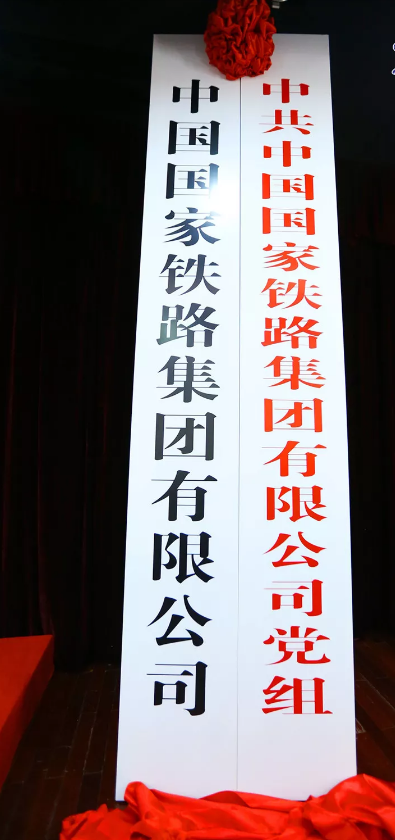 中国国家铁路集团有限公司
中共中国国家铁路集团有限公司党组